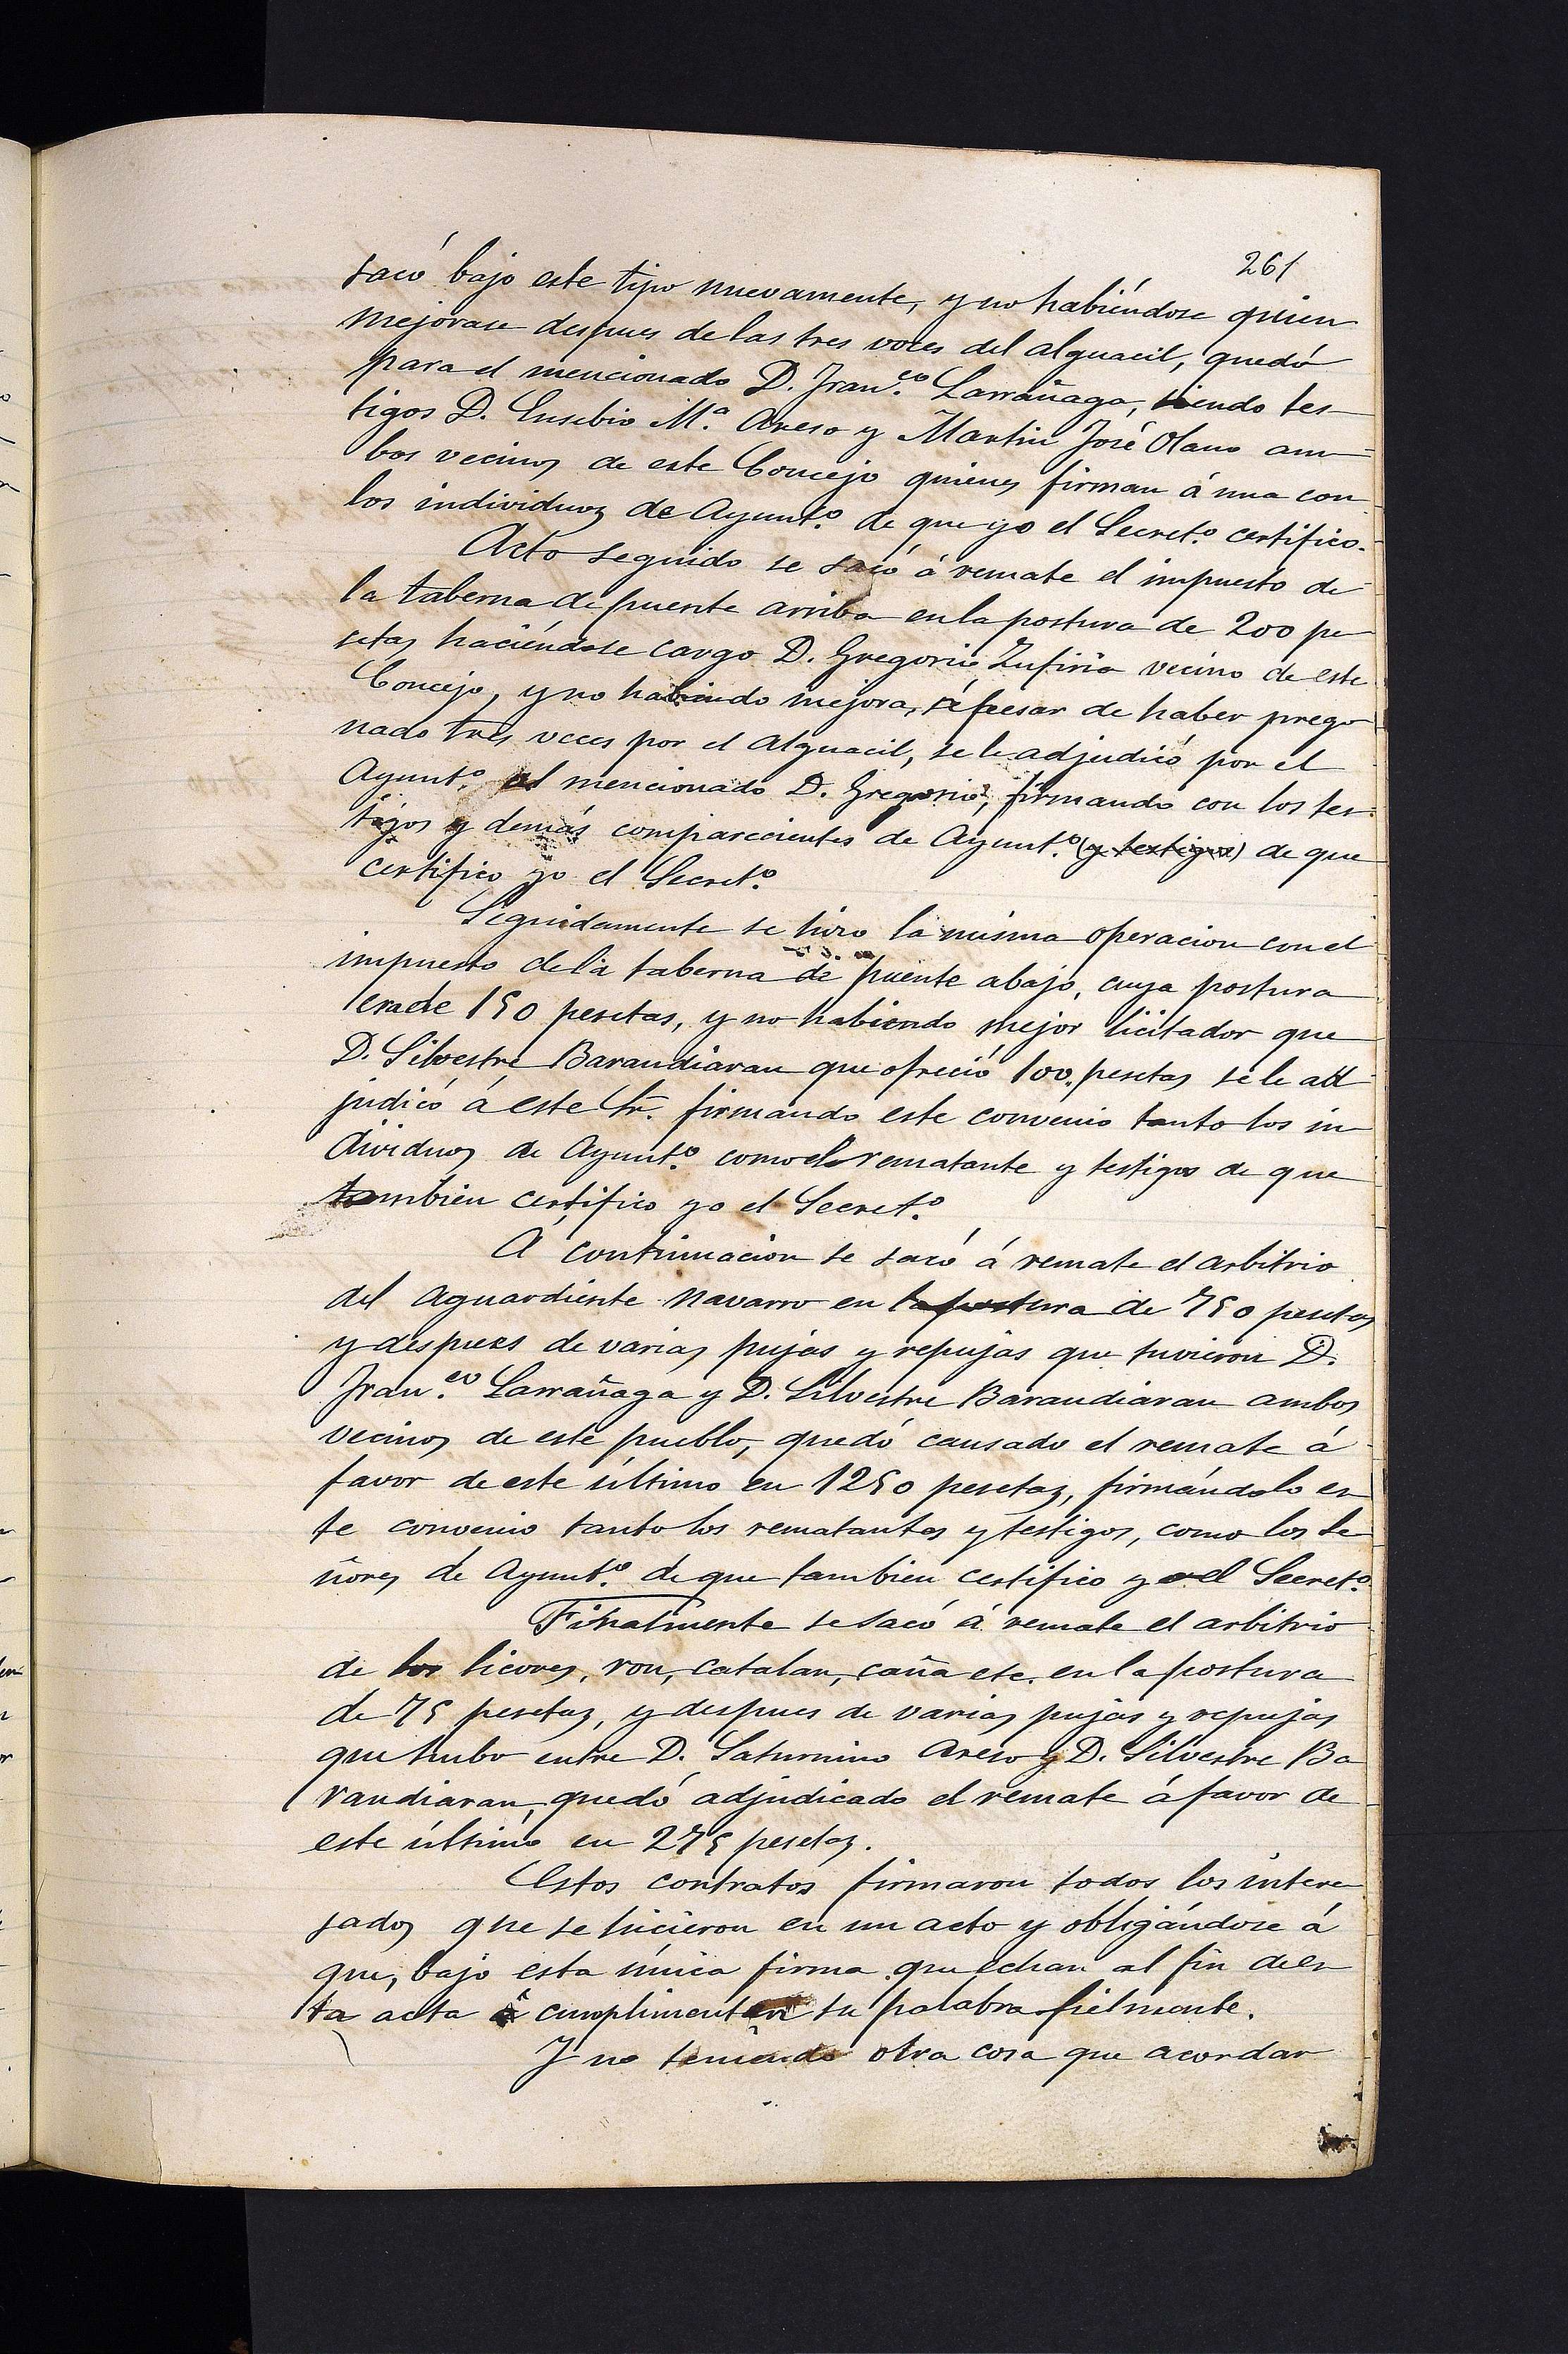 261
sacó bajo este tipo nuevamente, y no habiéndose quien
mejorase despues de las tres voces del alguacil, quedó
para el mencionado D. Fran.co Larrañaga, siendo tes-
tigos D. Eusebio M.a Areso y Martin José Olano am-
bos vecinos de este Concejo quienes firman á una con
los individuos de Ayunt.o de que yo el Secret.o certifico.
Acto seguido se sacó á remate el impuesto de
la taberna de puente arriba en la postura de 200 pe-
setas haciéndose cargo D. Gregorio Zufiria vecino de este
Concejo, y no habiendo mejora, á pesar de haber prego-
nado tres veces por el Alguacil, se le adjudicó por el
Ayunt.o al mencionado D. Gregorio, firmando con los tes-
tigos y demás comparecientes de Ayunt.o (y testigos) de que
certifico yo el Secret.o
Seguidamente se hizo la misma operacion con el
impuesto de la taberna de puente abajo, cuya postura
era de 150 pesetas, y no habiendo mejor licitador que
D. Silvestre Barandiaran que ofreció 100 pesetas se le ad
judicó á este Sr. firmando este convenio tanto los in
dividuos de Ayunt.o como el rematante y testigos de que
tambien certifico yo el Secret.o
A continuacion se sacó á remate el arbitrio
del aguardiente navarro en la postura de 750 pesetas
y despues de varias pujas y repujas que tuvieron D.
Fran.co Larrañaga y D. Silvestre Barandiaran ambos
vecinos de este pueblo, quedó causado el remate á
favor de este último en 1250 pesetas, firmándolo es-
te convenio tanto los rematantes y testigos, como los Se
ñores de Ayunt.o de que tambien certifico yo el Secret.o
Finalmente se sacó á remate el arbitrio
de los licores, ron, catalan, caña etc. en la postura
de 75 pesetas, y despues de varias pujas y repujas
que hubo entre D. Saturnino Areso y D. Silvestre Ba
randiaran, quedó adjudicado el remate á favor de
este último en 275 pesetas.
Estos contratos firmaron todos los intere
sados que se hicieron en un acto y obligándose á
que, bajo esta única firma que echan al fin de es-
ta acta á cumplimentar su palabra fielmente.
Y no teniendo otra cosa que acordar